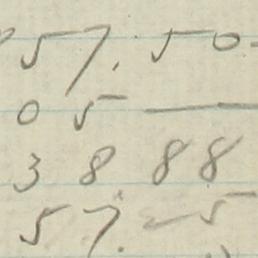 57.50
05 —
38 88
57.25